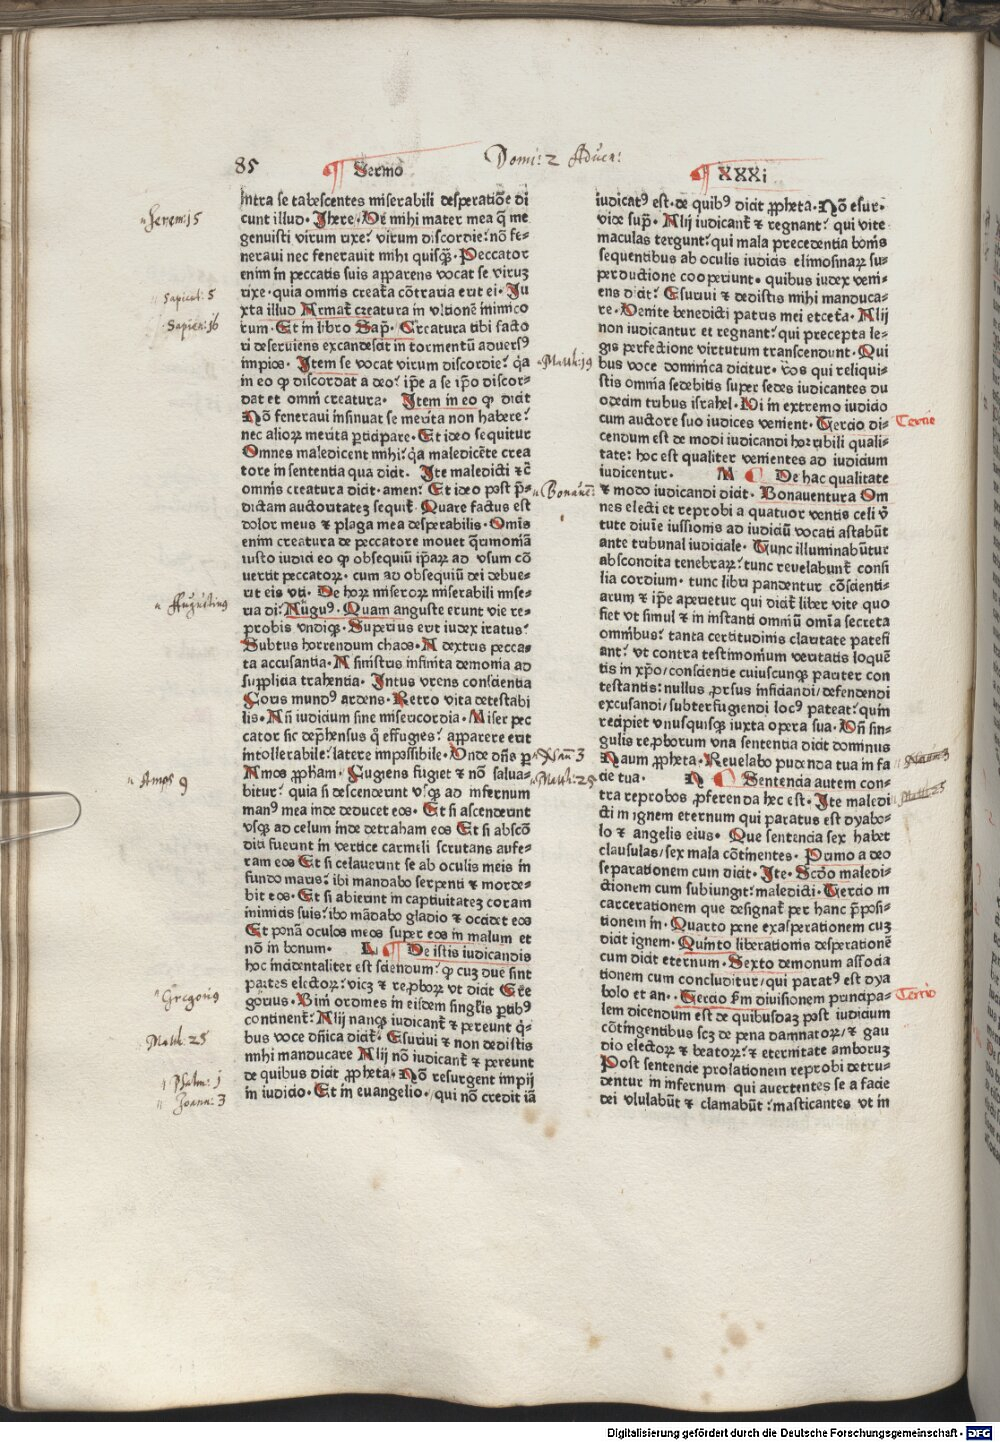 85 ¶ Sermo
Domi: 2 Aduen:
¶ XXXi
intra se tabescentes miserabili desperatiõe di
cunt illud. Jhere. Ve mihi mater mea q̃ me
genuisti virum rixe? virum discordie? nõ fe-
neraui nec fenerauit mihi quisq̃. Peccator
enim in peccatis suis apparens vocat se viruʒ
rixe. quia omnis creat̃a cõtraria erit ei. Ju
xta illud Armat̃ creatura in vltionẽ inimico
rum. Et in libro Sap̃. Creatura tibi facto
ri deseruiens excandescit in tormentũ aduersꝰ
impios. Item se vocat virum discordie? q̃a
in eo ꝙ discordat a deo? ip̃e a se ip̃o discor-
dat et omni creatura. Item in eo ꝙ dicit
Nõ feneraui insinuat se merita non habere?
nec alioꝝ merita ꝑticipare. Et ideo sequitur
Omnes maledicent mihi? q̃a maledicẽte crea
tore in sententia qua dicit. Ite maledicti ⁊c̃
omnis creatura dicit. amen? Et ideo post p̃-
dictam auctoritateʒ sequit̃. Quare factus est
dolor meus ⁊ plaga mea desperabilis. Om̃is
enim creatura de peccatore mouet q̃rimoniã
iusto iudici eo ꝙ obsequiũ ip̃aꝝ ad vsum cõ
uertit peccatoꝝ. cum ad obsequiũ dei debue-
rit eis vti. De hoꝝ miseroꝝ miserabili mise-
ria di? Augꝰ. Quam anguste erunt vie re-
probis vndiq̃. Superius erit iudex iratus?
Subtus horrendum chaos. A dextris pecca-
ta accusantia. A sinistris infinita demonia ad
supplicia trahentia. Intus vrens conscientia
Foris mundꝰ ardens. Retro vita detestabi
lis. Añ iudicium sine misericordia. Miser pec
cator sic dep̃hensus q̃ effugies? apparere erit
intollerabile? latere impossibile. Vnde dñs ꝑ
Amos ꝓpham. Fugiens fugiet ⁊ nõ salua-
bitur? quia si descenderint vsq̃ ad infernum
manꝰ mea inde deducet eos. Et si ascenderint
vsq̃ ad celum inde detraham eos Et si abscõ
diti fuerint in vertice carmeli scrutans aufe-
ram eos Et si celauerint se ab oculis meis in
fundo maris? ibi mandabo serpenti ⁊ morde-
bit eos. Et si abierint in captiuitateʒ coram
inimicis suis? ibo mãdabo gladio ⁊ occidet eos
Et ponã oculos meos super eos in malum et
nõ in bonum. L ¶ De istis iudicandis
hoc incidentaliter est sciendum? ꝙ cuʒ due sint
partes electoꝝ? vicʒ ⁊ reꝓboꝝ vt dicit Gre
gorius. Bini ordines in eisdem singl̃is ꝑtibꝰ
continent̃? Alij nanq̃ iudicant̃ ⁊ pereunt q̃-
bus voce dñica dicit̃? Esuriui ⁊ non dedistis
mihi manducare Alij nõ iudicant̃ ⁊ pereunt
de quibus dicit ꝓpheta. Nõ resurgent impij
in iudicio. Et in euangelio. qui nõ credit iã
iudicatꝰ est. de quibꝰ dicit ꝓpheta. Nõ esur.
vide sup̃. Alij iudicant̃ ⁊ regnant? qui vite
maculas tergunt? qui mala precedentia bonis
sequentibus ab oculis iudicis elimosinaꝝ su-
perductione cooperiunt. quibus iudex veni-
ens dicit? Esuriui ⁊ dedistis mihi manduca-
re. Venite benedicti patris mei etcet̃a. Alij
non iudicantur et regnant? qui precepta le-
gis perfectione virtutum transcendunt. Qui
bus voce dominica dicitur. vos qui reliqui-
stis omnia sedebitis super sedes iudicantes du
odecim tribus israhel. Hi in extremo iudicio
cum auctore suo iudices venient. Tercio di-
cendum est de modi iudicandi horribili quali-
tate? hoc est qualiter venientes ad iudicium
iudicentur. M ¶ De hac qualitate
⁊ modo iudicandi dicit. Bonauentura Om
nes electi et reprobi a quatuor ventis celi v̄
tute diuine iussionis ad iudiciũ vocati astabũt
ante tribunal iudiciale. Tunc illuminabũtur
abscondita tenebraꝝ? tunc reuelabunt̃ consi
lia cordium. tunc libri pandentur cõscienti-
arum ⁊ ip̃e aperietur qui dicit̃ liber vite quo
fiet vt simul ⁊ in instanti omniũ om̃ia secreta
omnibus? tanta certitudinis claritate patefi
ant? vt contra testimonium veritatis loquẽ
tis in xp̃o/conscientie cuiuscunq̃ pariter con
testantis: nullus ꝓrsus inficiandi/defendendi
excusandi/subterfugiendi locꝰ pateat? quin
recipiet vnusquisq̃ iuxta opera sua. Vñ sin-
gulis reꝓborum vna sententia dicit dominus
Naum ꝓpheta. Reuelabo pudenda tua in fa
cie tua. N ¶ Sentencia autem con-
tra reprobos ꝓferenda hec est. Ite maledi
cti in ignem eternum qui paratus est dyabo-
lo ⁊ angelis eius. Que sentencia sex habet
clausulas/sex mala cõtinentes. Primo a deo
separationem cum dicit. Ite. Scd̃o maledi-
ctionem cum subiungit? maledicti. Tercio in
carcerationem que designat̃ per hanc p̃posi-
tionem in. Quarto pene exasperationem cuʒ
dicit ignem. Quinto liberationis desperationẽ
cum dicit eternum. Sexto demonum associa
tionem cum concluditur/qui paratꝰ est dya
bolo et an. Tercio ẜm diuisionem principa-
lem dicendum est de quibusdaʒ post iudicium
cõtingentibus scʒ de pena damnatoꝝ/⁊ gau
dio electoꝝ ⁊ beatoꝝ? ⁊ eternitate amboruʒ
Post sentencie prolationem reprobi detru-
dentur in infernum qui auertentes se a facie
dei vlulabũt ⁊ clamabũt? masticantes vt in
Jerem: 15
Sapient: 5
Sapien: 16
Augustinus
Amos 9
Gregoriꝰ
Math: 25
Psalm: 1
Joann: 3
Math: 19
Bonauẽ:
Naum 3
Math: 25
Tercie
Naum 3
Math 25
Tercio
Digitalisierung gefördert durch die Deutsche Forschungsgemeinschaft - DFG